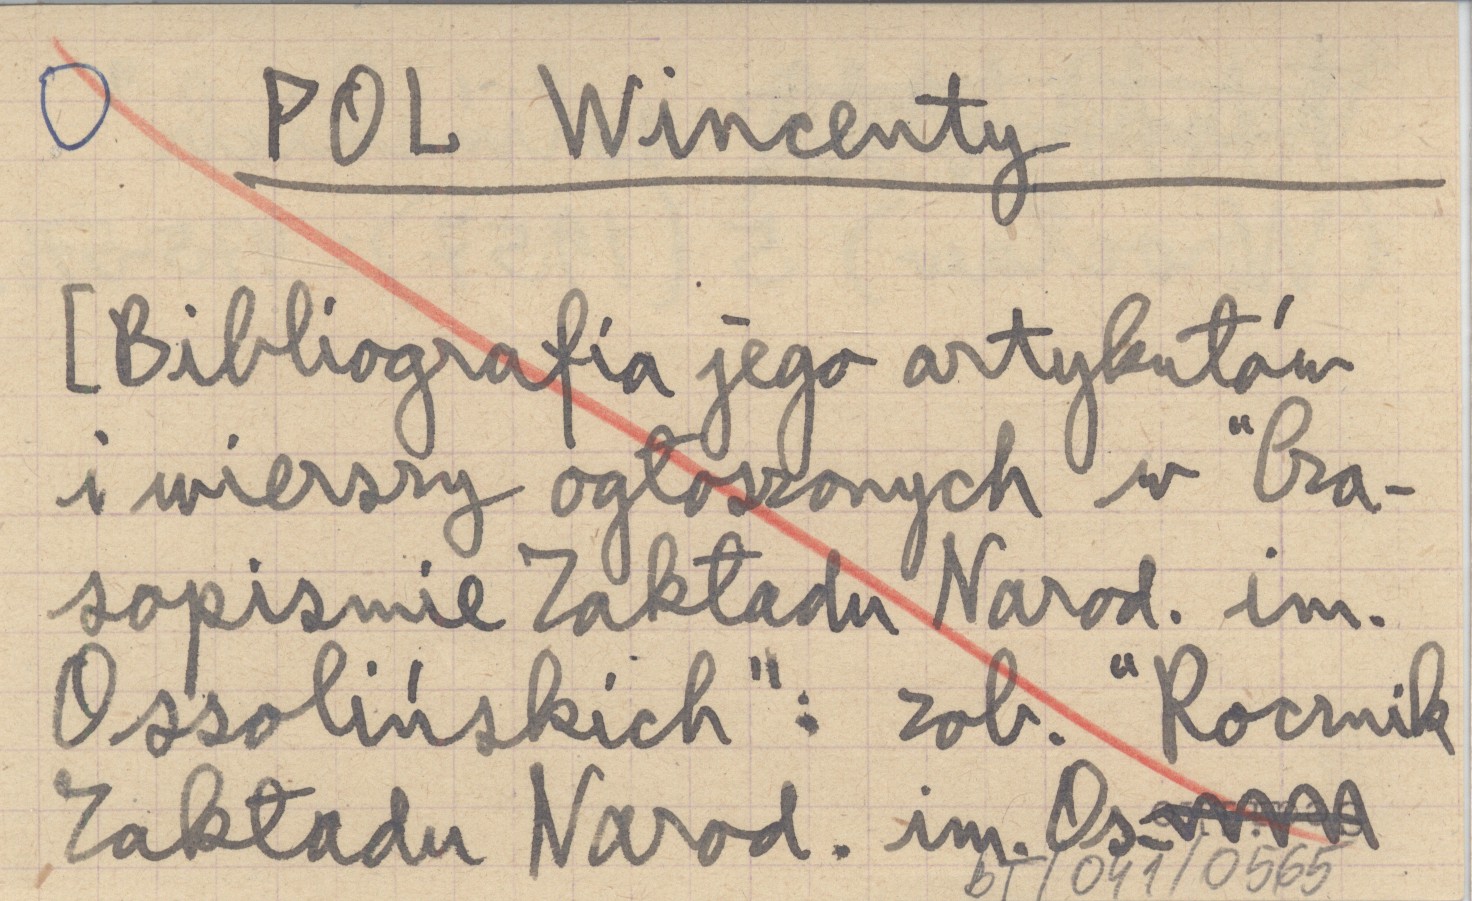 POL Wincenty
[Bibliografia jego artykułów
i wierszy ogłoszonych w "Cza-
sopismie Zakładu Narod. im.
Ossolińskich": zob. "Rocznik
Zakładu Narod. im. Os-
bT/041/0565